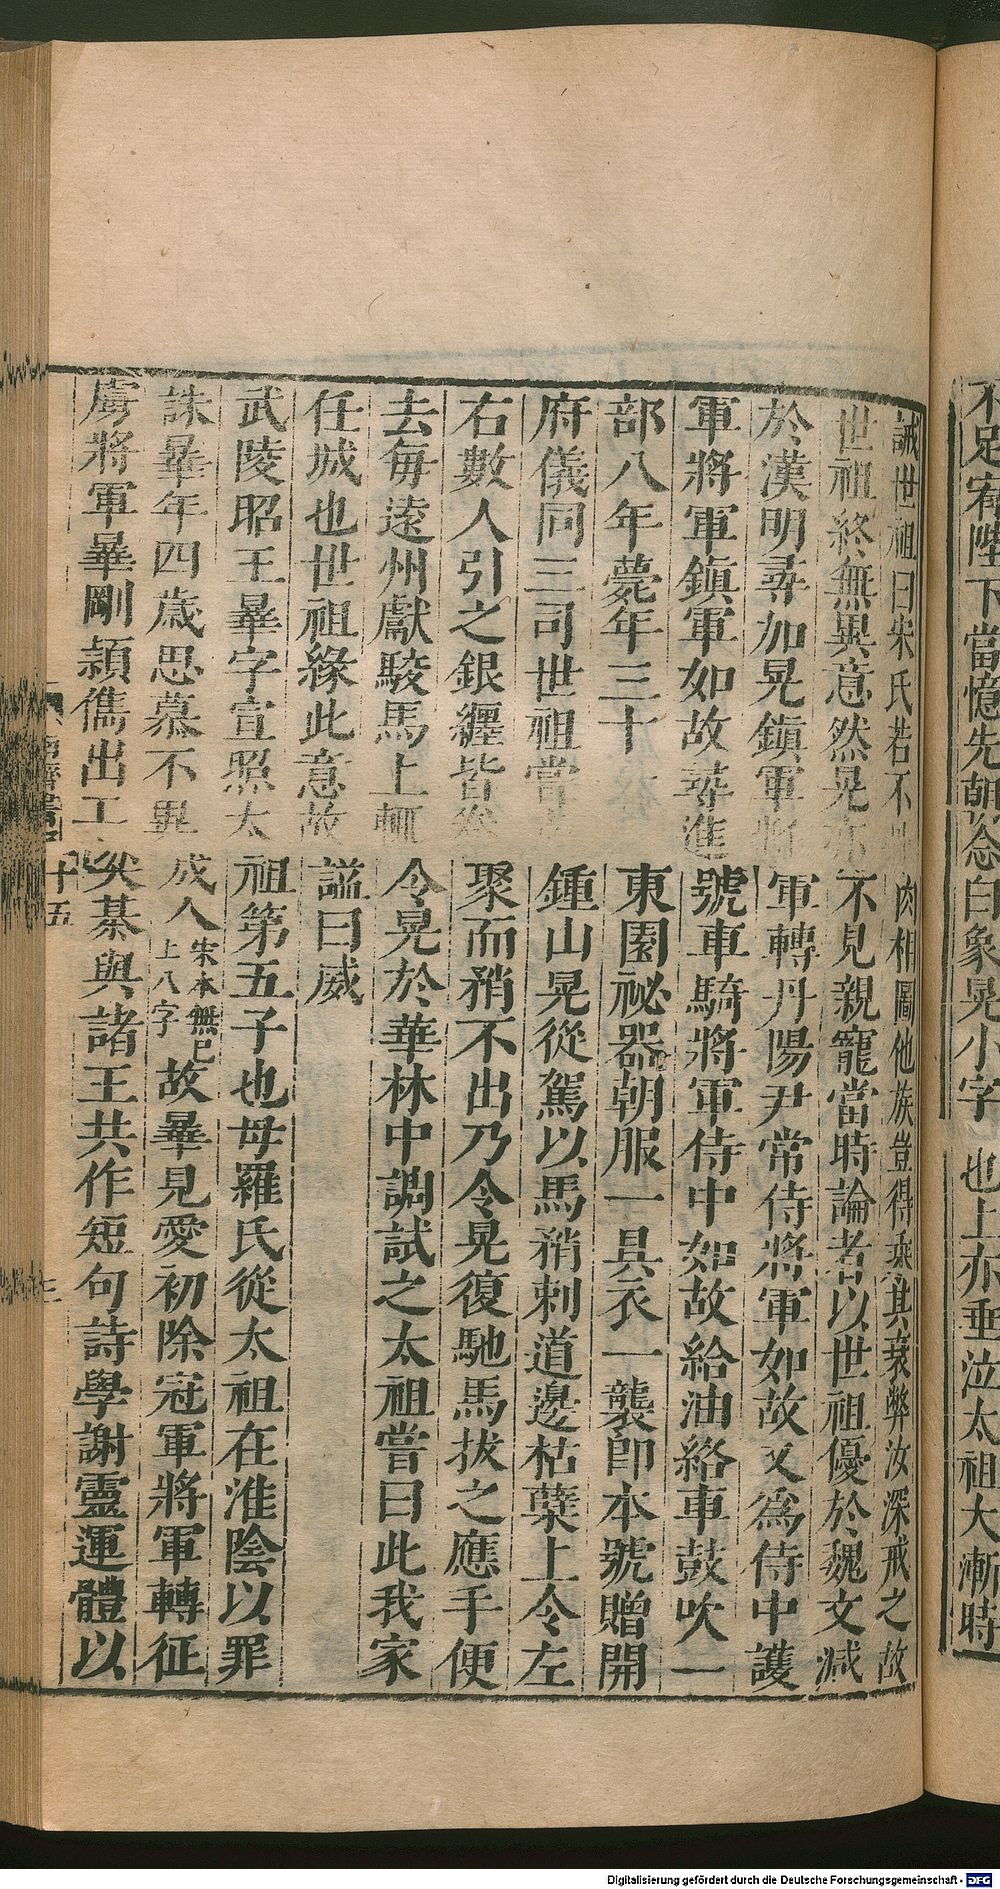 不足宥陛下當憶先朝念白象晃小字也上亦垂泣太祖大漸時
誡世祖曰宋氏若不骨肉相圖他族豈得乘其衰弊汝深戒之故
世祖終無異意然晃亦不見親寵當時論者以世祖優於魏文減
於漢明尋加晃鎮軍將軍轉丹陽尹常侍將軍如故又為侍中護
軍將軍鎮軍如故尋進號車騎將軍侍中如故給油絡車鼓吹一
部八年薨年三十東園祕器朝服一具衣一襲即本號贈開
府儀同三司世祖嘗幸鍾山晃從駕以馬矟刺道邊枯櫱上令左
右數人引之銀纏皆卷聚而矟不出乃令晃復馳馬拔之應手便
去每遠州獻駿馬上輒令晃於華林中調試之太祖嘗曰此我家
任城也世祖緣此意故謚曰威
武陵昭王曅字宣照太祖第五子也母羅氏從太祖在淮陰以罪
誅曅年四歲思慕不異成人宋本無已上八字故曅見愛初除冠軍將軍轉征
虜將軍曅剛穎儁出工奕棊與諸王共作短句詩學謝靈運體以
南齊書
十五
Digitalisierung gefördert durch die Deutsche Forschungsgemeinschaft - DFG